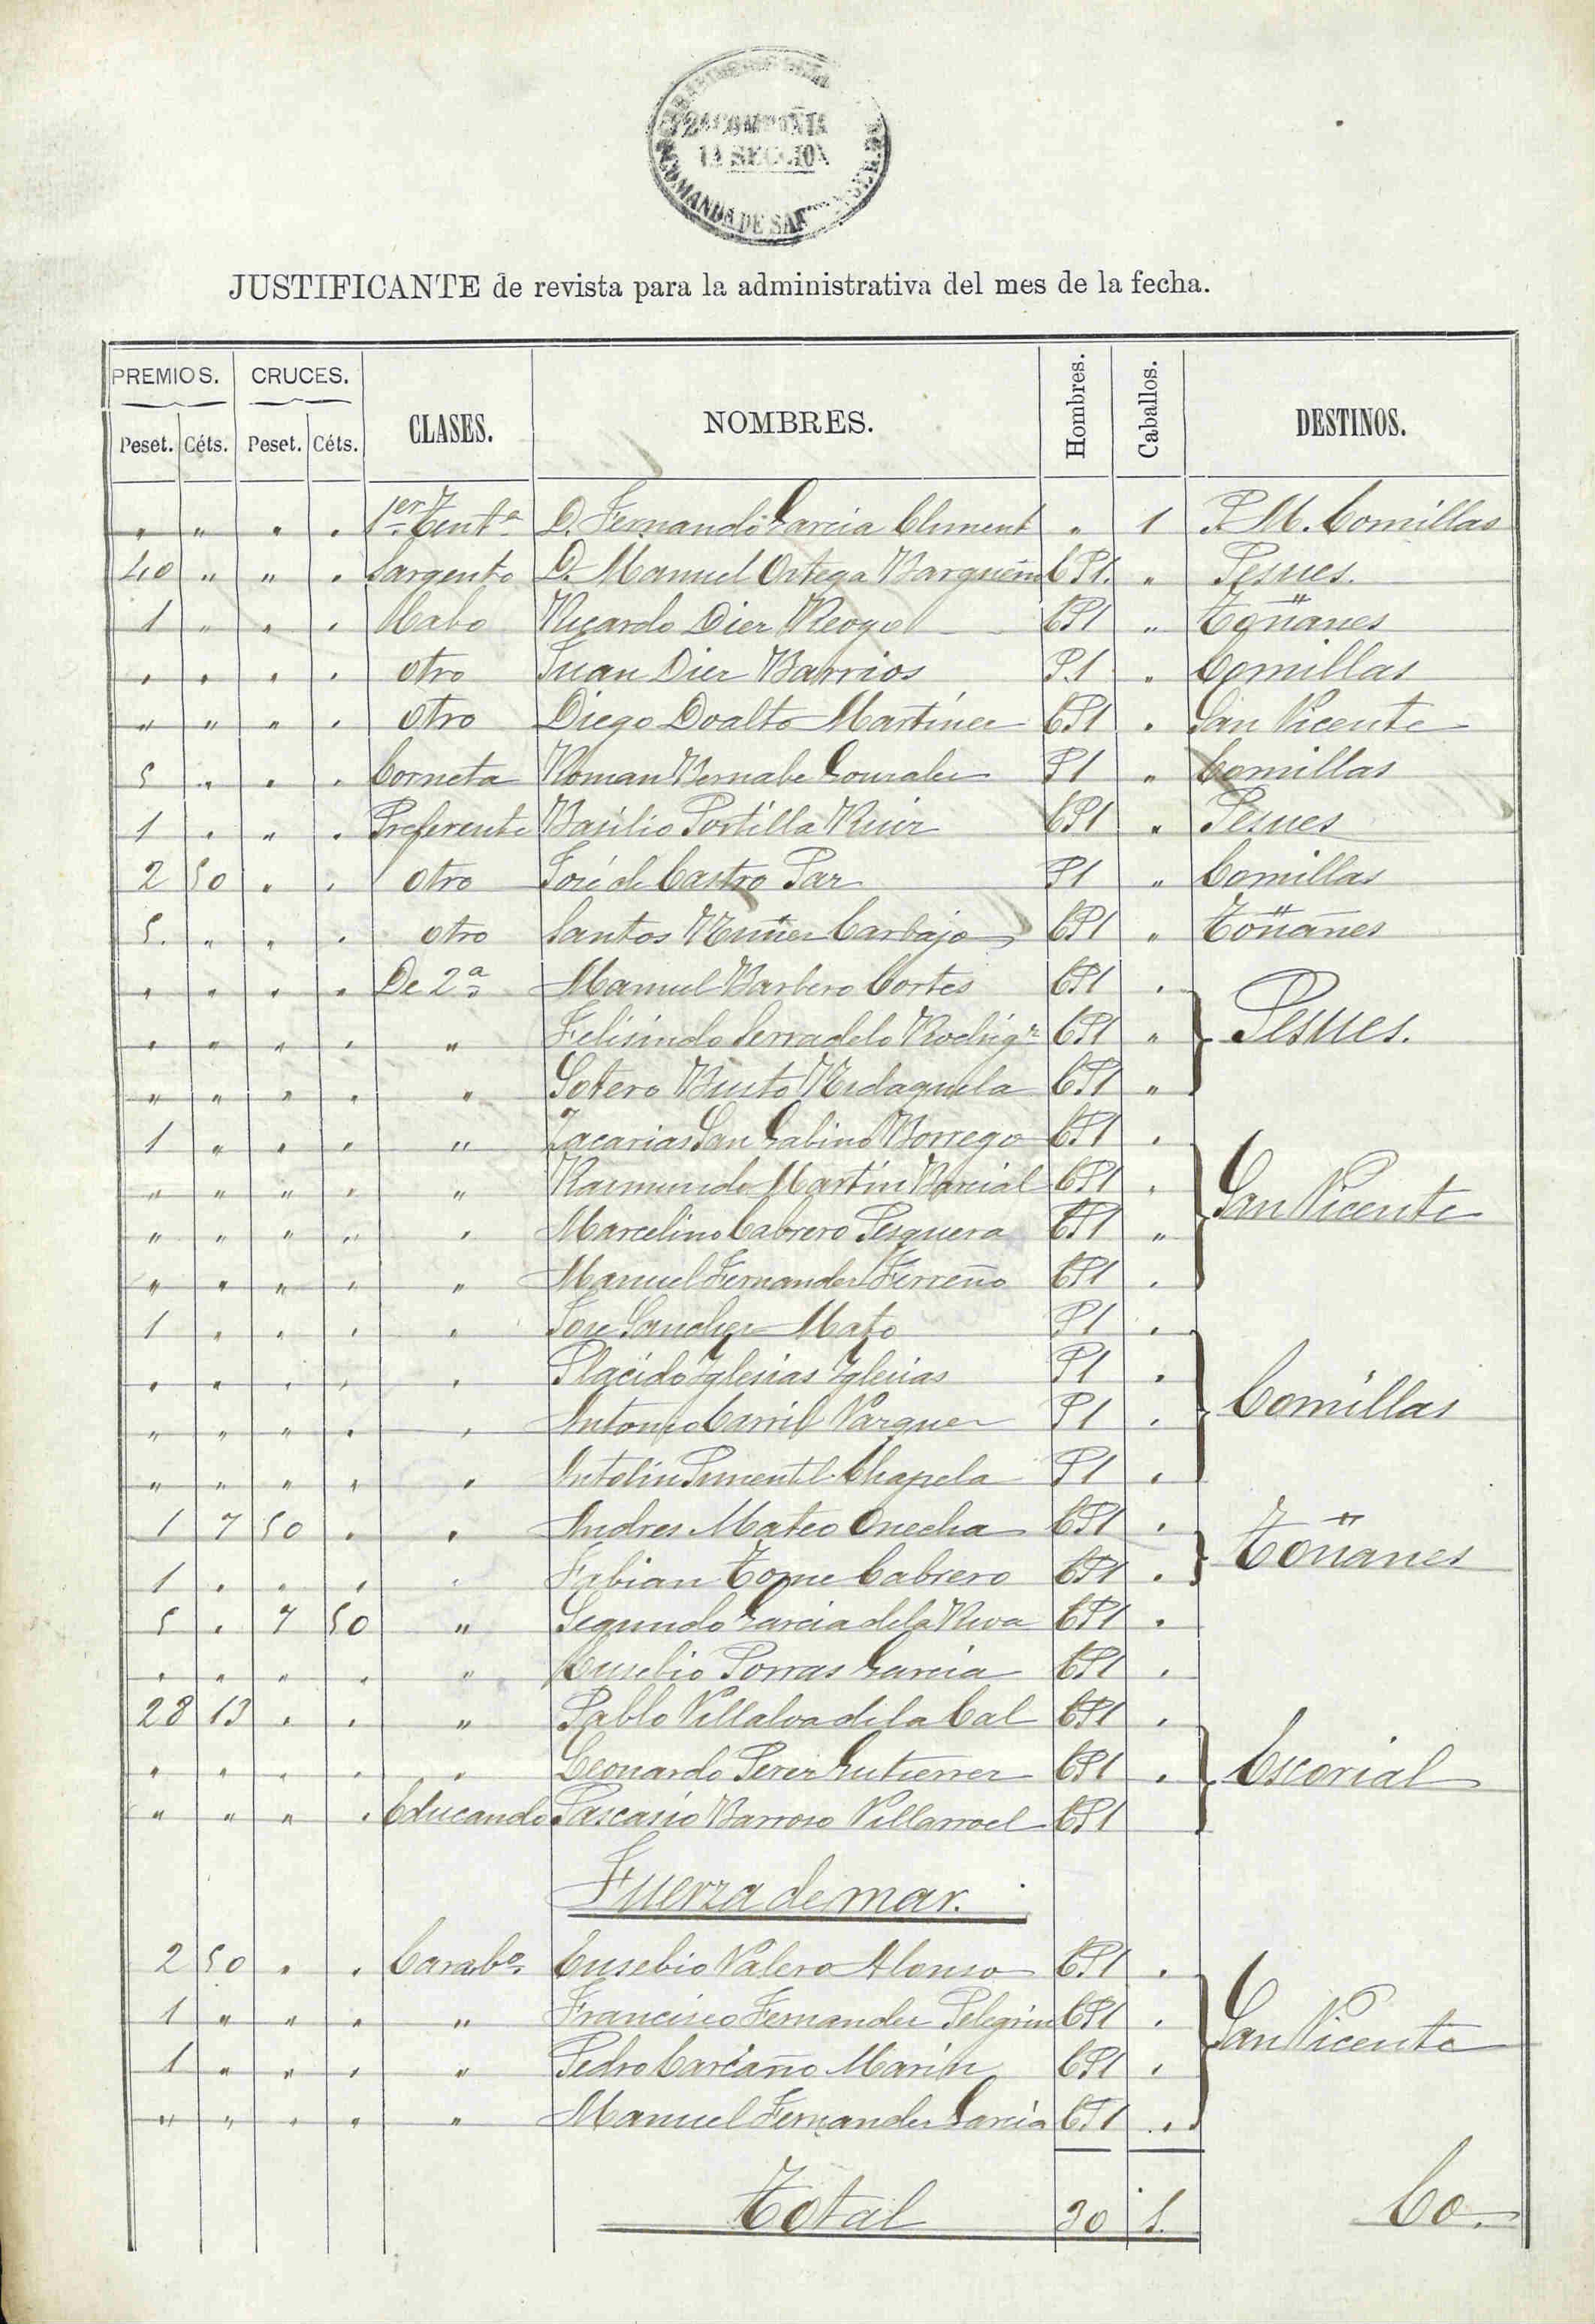 2ª COMPAÑIA
1ª SECCION
COMANDA DE SAN
JUSTIFICANTE de revista para la administrativa del mes de la fecha.
PREMIOS. CRUCES. CLASES. NOMBRES. Hombres. Caballos. DESTINOS.
Peset. Céts. Peset. Céts.
" " " " 1er Tente D. Fernando Garcia Climent " 1 P. M. Comillas
40 " " " Sargento D. Manuel Ortega Bargueño CP1. " Pesues.
1 " " " Cabo Ricardo Diez Reoyo CP1 " Toñanes
" " " " otro Juan Diez Barrios P.1 " Comillas
" " " " otro Diego Doalto Martinez CP1 " San Vicente
5 " " " Corneta Roman Bernabe Gonzalez P1 " Comillas
1 " " " Preferente Basilio Portilla Ruiz CP1 " Pesues
2 50 " " otro José de Castro Paz P1 " Comillas
5. " " " otro Santos Nuñez Carbajo CP1 " Toñanes
" " " " De 2ª Manuel Barbero Cortes CP1 "
" " " " " Felisindo Serradelo Rodrigz CP1 " Pesues.
" " " " " Sotero Busto CP1 "
1 " " " " Zacarias San Gabino Borrego CP1 "
" " " " " Raimundo Martin Barcial CP1 " San Vicente
" " " " " Marcelino Cabrero Pesquera CP1 "
" " " " " Manuel Fernandez Ferreño CP1 "
1 " " " " José Sanchez Mato P1 "
" " " " " Placido Iglesias Iglesias P1 "
" " " " " Antonio Carril Vazquez P1 " Comillas
" " " " " Antolin Pimentel Chapela P1 "
1 7 50 " " Andres Mateo Onecha CP1 "
1 " " " " Fabian Tome Cabrero CP1 " Toñanes
5 " 7 50 " Segundo Garcia de la Riva CP1 "
" " " " " Eusebio Porras Garcia CP1 "
28 13 " " " Pablo Villalva de la Cal CP1 "
" " " " " Leonardo Perez Gutierrez CP1 " Escorial
" " " " Educando Pascasio Barroso Villarroel CP1
Fuerza de mar.
2 50 " " Carabo. Eusebio Valero Alonso CP1 "
1 " " " " Francisco Fernandez Pelegrin CP1 "
1 " " " " Pedro Carcaño Marin CP1 " San Vicente
" " " " " Manuel Fernandez Garcia CP1 "
Total 30 1. Co.